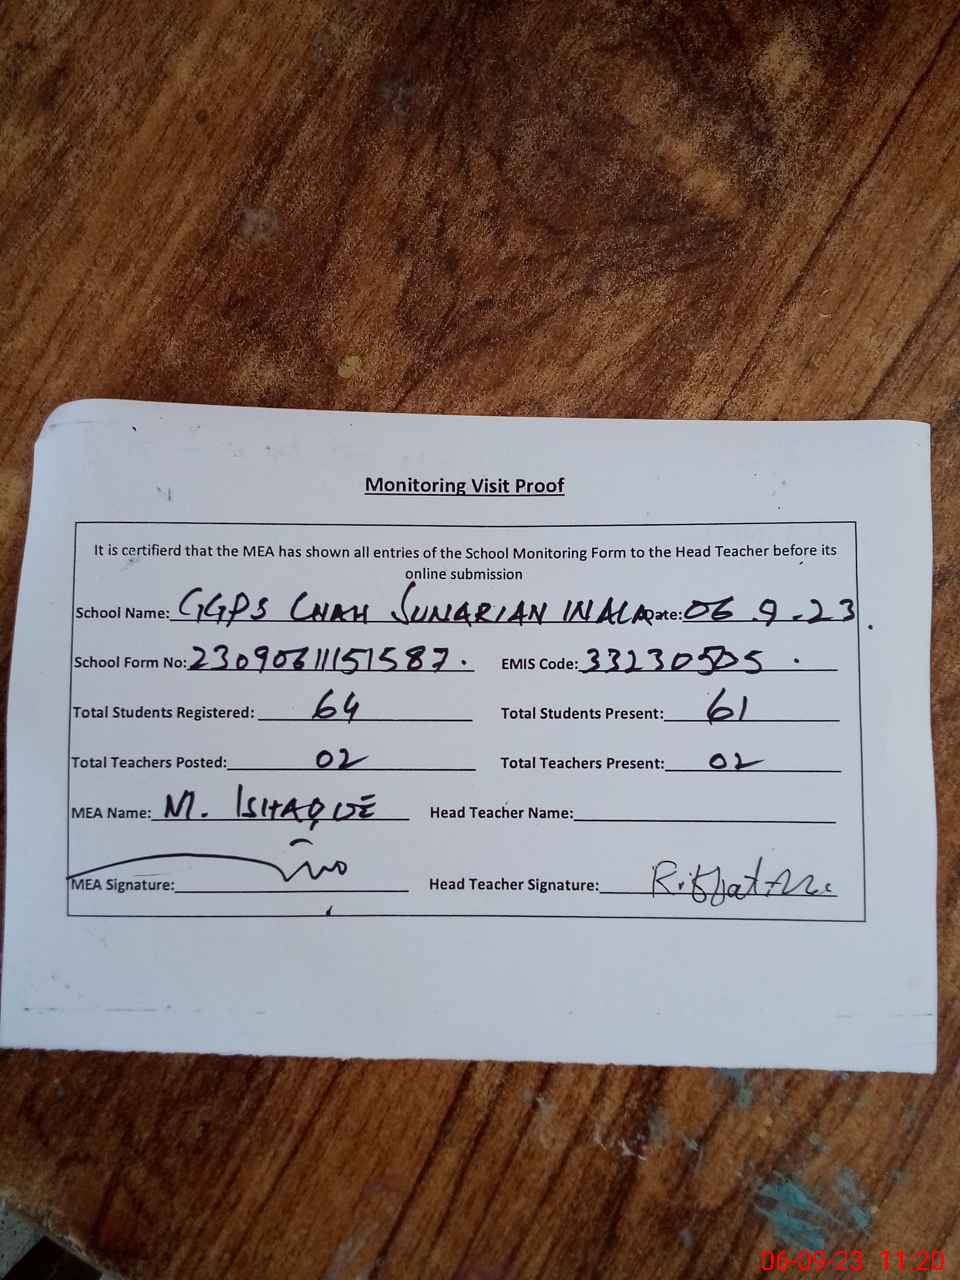 Monitoring Visit Proof
It is certifierd that the MEA has shown all entries of the School Monitoring Form to the Head Teacher before its
online submission
School Name: GGPS CHAH SUNARIAN INALA Date: 06.9.23
School Form No: 2309061151587. EMIS Code: 33230505.
Total Students Registered: 64 Total Students Present: 61
Total Teachers Posted: 02 Total Teachers Present: 02
MEA Name: M. ISHAQUE Head Teacher Name:
MEA Signature: Head Teacher Signature:
06-09-23 11:20